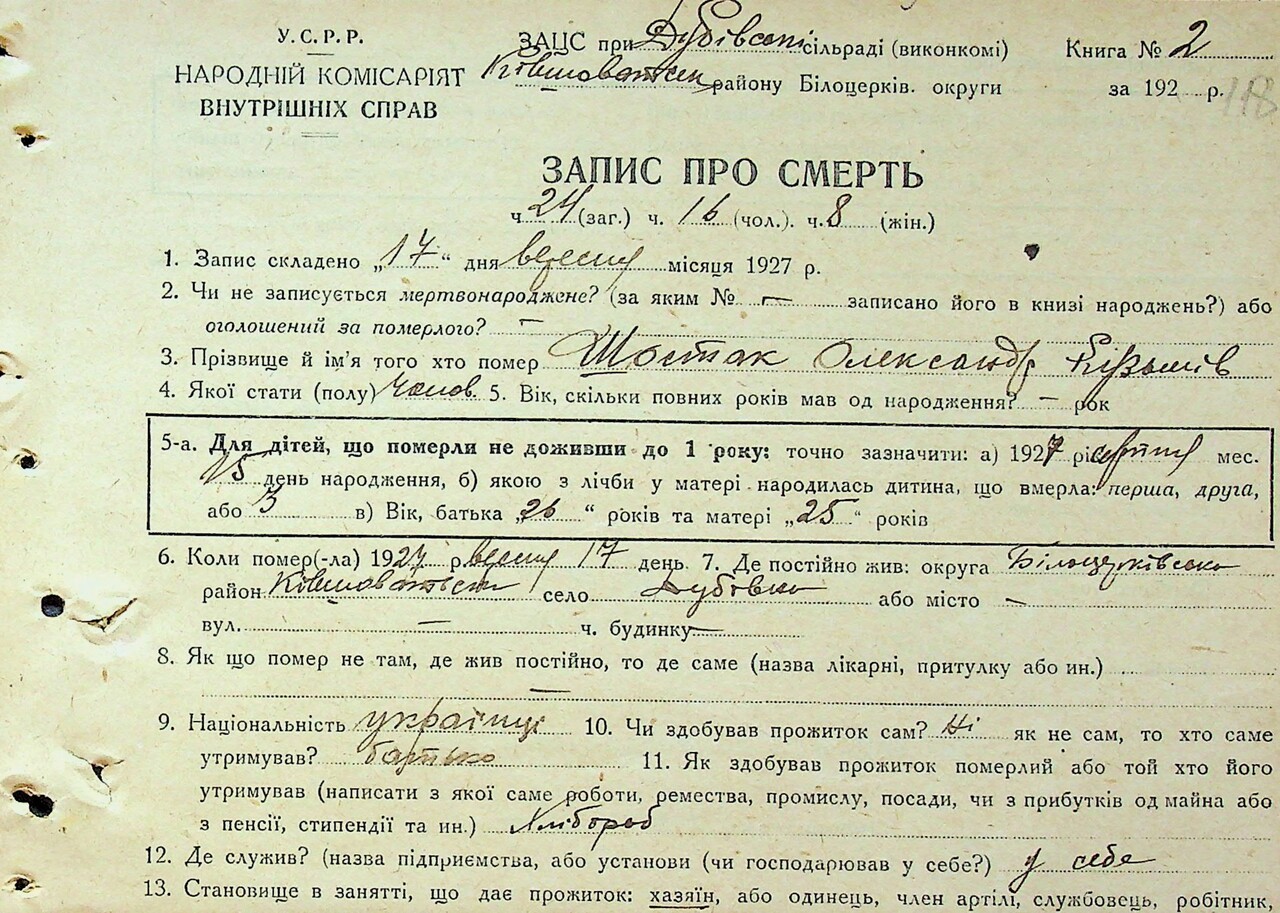 У.С.Р.Р.
НАРОДНІЙ КОМІСАРІЯТ
ВНУТРІШНІХ СПРАВ
ЗАЦС при Дубівській сільраді (виконкомі)
Ківшоватськ району Білоцерків. округи
Книга № 2
за 192 р.
118
ЗАПИС ПРО СМЕРТЬ
ч 24 (заг.) ч. 16 (чол.). ч. 8 (жін.)
1. Запис складено „17“ дня вересня місяця 1927 р.
2. Чи не записується мертвонароджене? (за яким № — записано його в книзі народжень?) або
оголошений за померлого? —
3. Прізвище й ім'я того хто помер Шостак Олександр Кузьмів
4. Якої стати (полу) Чолов. 5. Вік, скільки повних років мав од народження? — рок
5-а. Для дітей, що померли не доживши до 1 року: точно зазначити: а) 1927 рі серпня мес.
15 день народження, б) якою з лічби у матері народилась дитина, що вмерла: перша, друга,
або 3 в) Вік, батька „26“ років та матері „25“ років
6. Коли помер(-ла) 1927 р. вересня 17 день 7. Де постійно жив: округа Білоцерківська
район Ківшоватськ село Дубівка або місто —
вул. — ч. будинку —
8. Як що помер не там, де жив постійно, то де саме (назва лікарні, притулку або ин.)
—
9. Національність українці 10. Чи здобував прожиток сам? Ні як не сам, то хто саме
утримував? батько 11. Як здобував прожиток померлий або той хто його
утримував (написати з якої саме роботи, ремества, промислу, посади, чи з прибутків од майна або
з пенсії, стипендії та ин.) Хлібороб
12. Де служив? (назва підприємства, або установи (чи господарював у себе?) у себе
13. Становище в занятті, що дає прожиток: хазяїн, або одинець, член артілі, службовець, робітник,